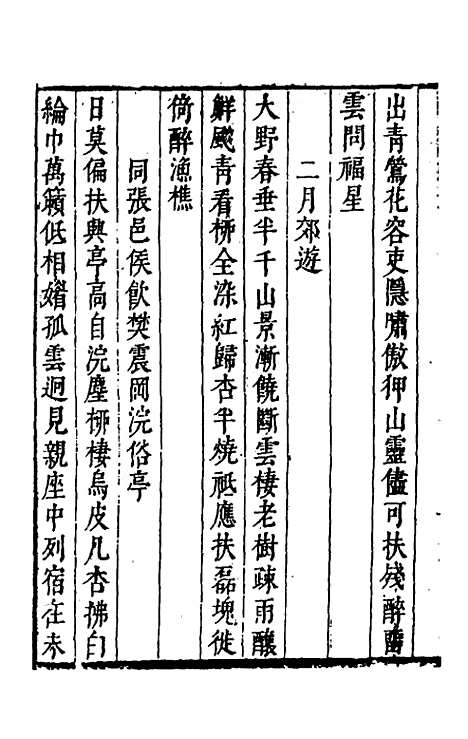 出青鶯花容吏隱嘯傲狎山靈儘可扶殘醉
雲問福星
二月郊遊
大野春垂半千山景漸饒斷雲棲老樹疎雨釀
鮮飈青看栁全染紅歸杏半燒祗應扶磊塊徙
倚醉漁樵
同張邑侯飲焚震岡浣俗亭
日莫偏扶興亭高自浣塵栁棲烏皮几杏拂白
綸巾萬籟低相媚孤雲迥見親座中列宿在未